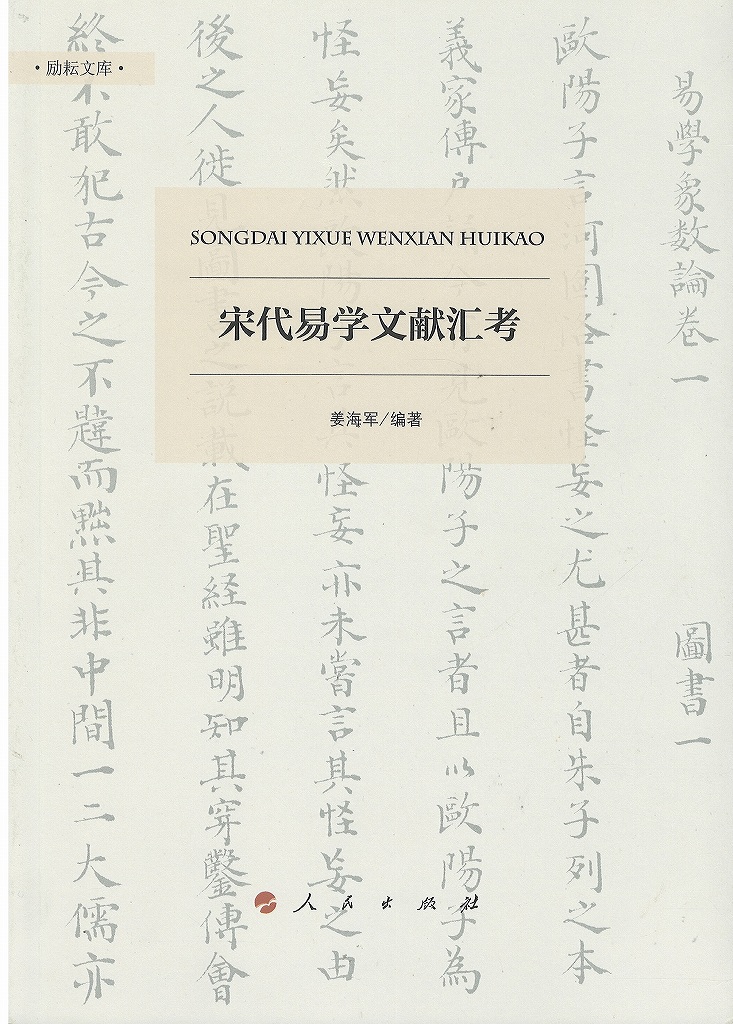 ·励耘文库·
SONGDAI YIXUE WENXIAN HUIKAO
宋代易学文献汇考
姜海军/编著
人民出版社
易學象數論卷一 圖書一
歐陽子言河圖洛書怪妄之尤甚者自朱子列之本
義家傳戶 見歐陽子之言者且以歐陽子為
怪妄矣然 陽 怪妄亦未嘗言其怪妄之由
後之人徙見圖書之說載在聖經雖明知其穿鑿傅會
終不敢犯古今之不韙而黜其非中間一二大儒亦